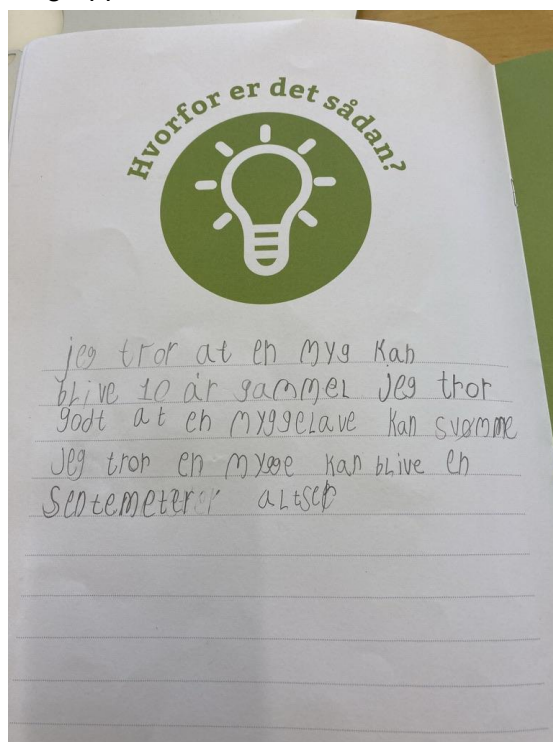 Hvorfor er det sådan?
jeg tror at en myg kan
blive 10 år gammel jeg tror
godt at en myggelave kan svømme
jeg tror en mygge kan blive en
sentemeter altså